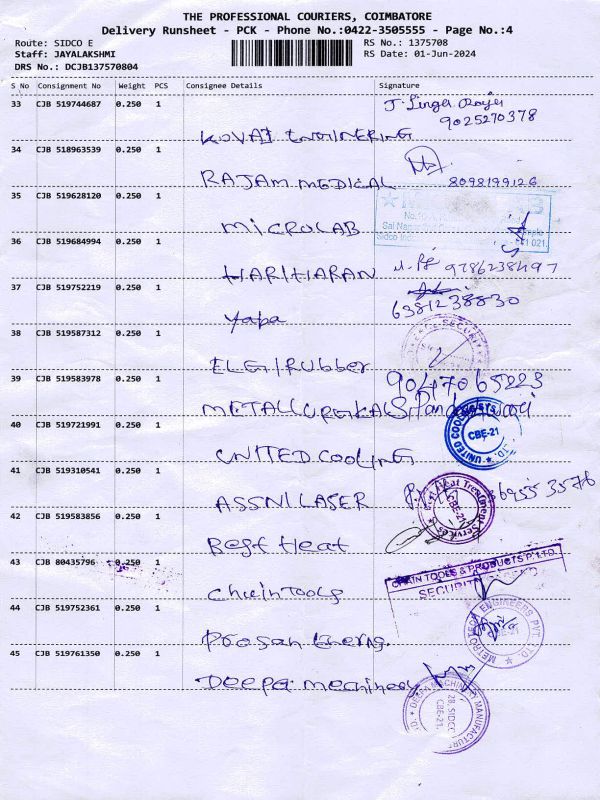 THE PROFESSIONAL COURIERS, COIMBATORE
Delivery Runsheet - PCK - Phone No.:0422-3505555 - Page No.:4
Route: SIDCO E
RS No.: 1375708
Staff: JAYALAKSHMI
RS Date: 01-Jun-2024
DRS No.: DCJB137570804
S No Consignment No Weight PCS Consignee Details Signature
33 CJB 519744687 0.250 1
9025270378
KOVAI ENGINERING
34 CJB 518963539 0.250 1
RAJAM MEDICAL 8098199126
35 CJB 519628120 0.250 1
MICROLAB
36 CJB 519684994 0.250 1
HARIHARAN 9786238497
37 CJB 519752219 0.250 1
6381238830
yapa
38 CJB 519587312 0.250 1
SECURITY
ELGI RUBBER
39 CJB 519583978 0.250 1
9047065223
METALLURGIKAL
40 CJB 519721991 0.250 1
UNITED COOLING SYS
CBE-21
UNITED COOLING
41 CJB 519310541 0.250 1
ASSNI LASER
42 CJB 519583856 0.250 1
Heat Treatment Services
CBE-21
Best Heat
43 CJB 80435796 0.250 1
CHAIN TOOLS & PRODUCTS P LTD.
SECURITY
Chain Tools
44 CJB 519752361 0.250 1
ENGINEERS PVT. LTD.
CBE-21
Poosan
45 CJB 519761350 0.250 1
Deepa
DEEPA MACHINERY MANUFACTURE
28, SIDCO
CBE-21.